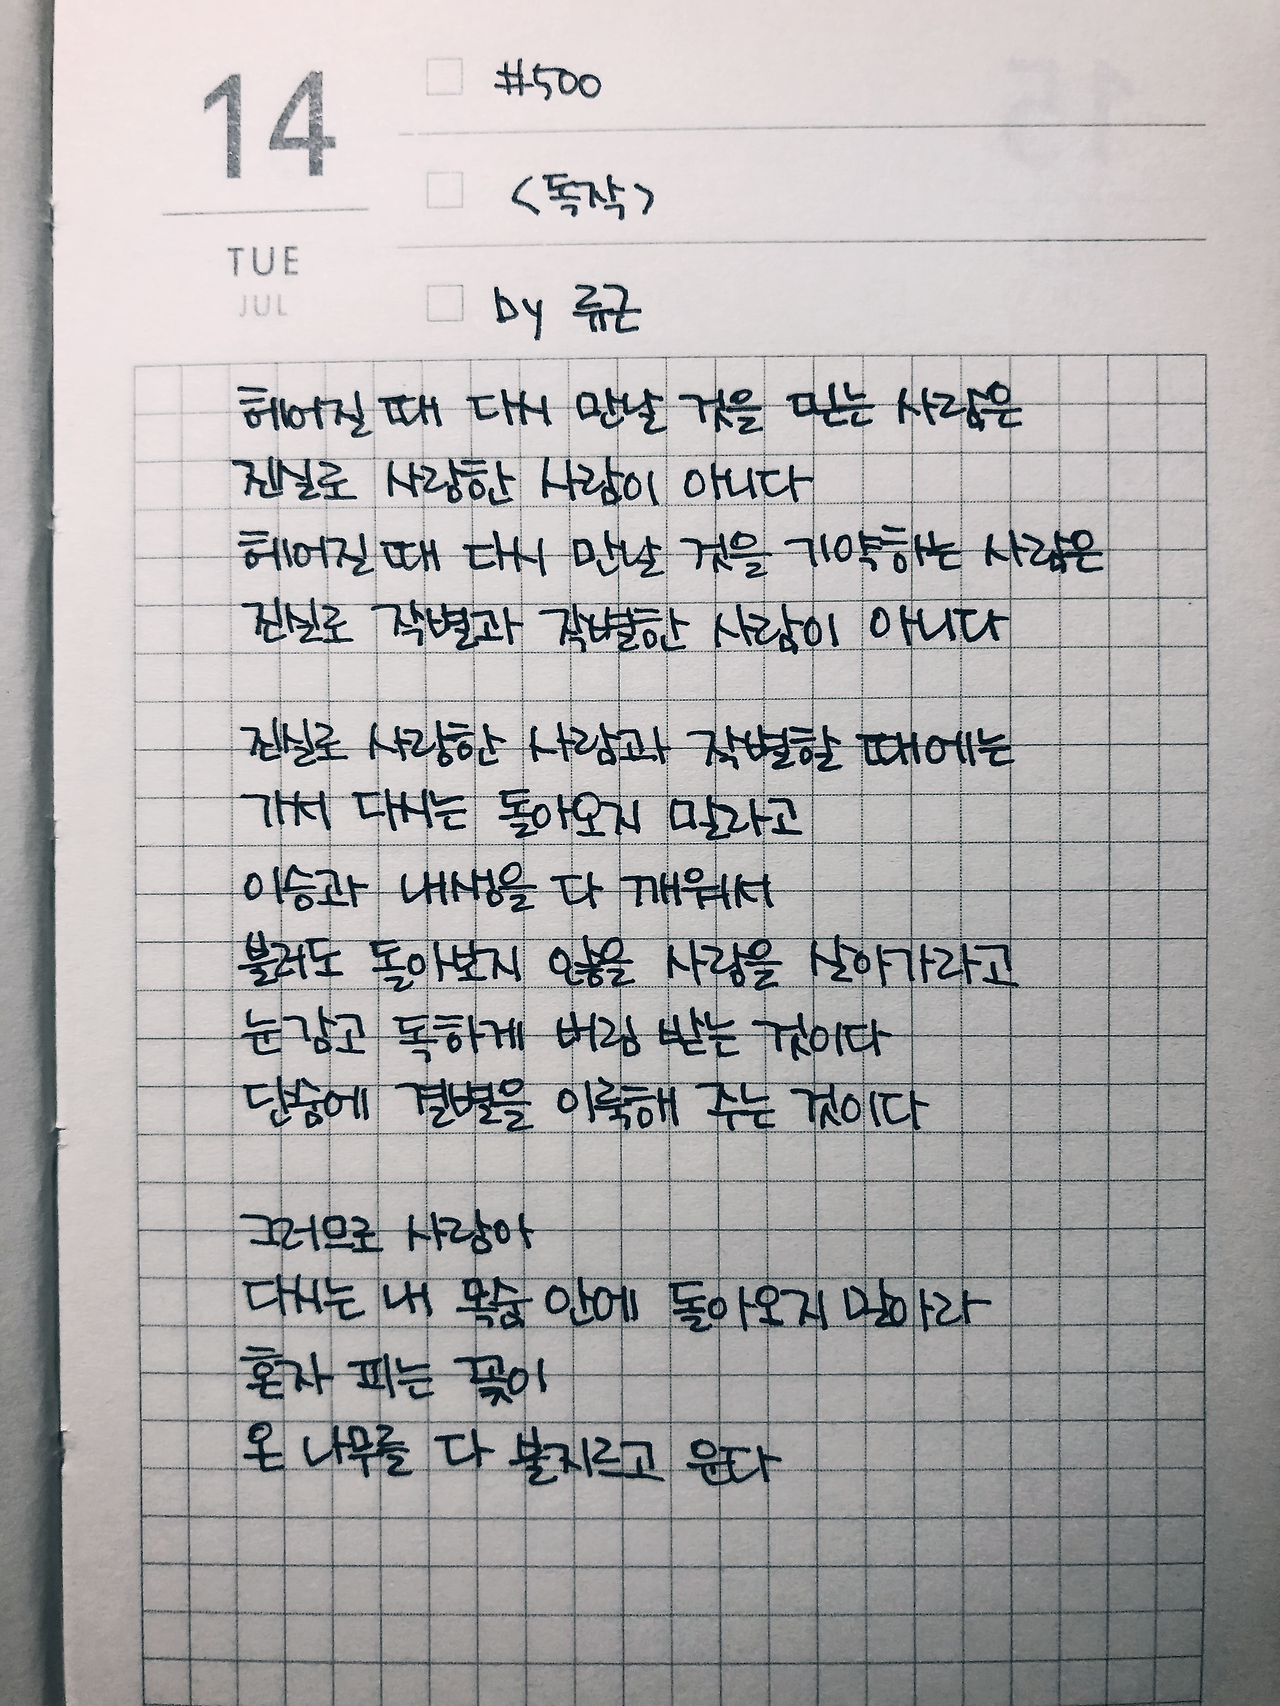 14
TUE
JUL
#500
<독작>
by 류근
헤어질 때 다시 만날 것을 믿는 사람은
진실로 사랑한 사람이 아니다
헤어질 때 다시 만날 것을 기약하는 사람은
진실로 작별과 작별한 사람이 아니다
진실로 사랑한 사람과 작별할 때에는
가서 다시는 돌아오지 말라고
이승과 내생을 다 깨워서
불러도 돌아보지 않을 사랑을 살아가라고
눈 감고 독하게 버림 받는 것이다
단숨에 결별을 이룩해 주는 것이다
그러므로 사랑아
다시는 내 목숨 안에 돌아오지 말아라
혼자 피는 꽃이
온 나무를 다 불지르고 운다